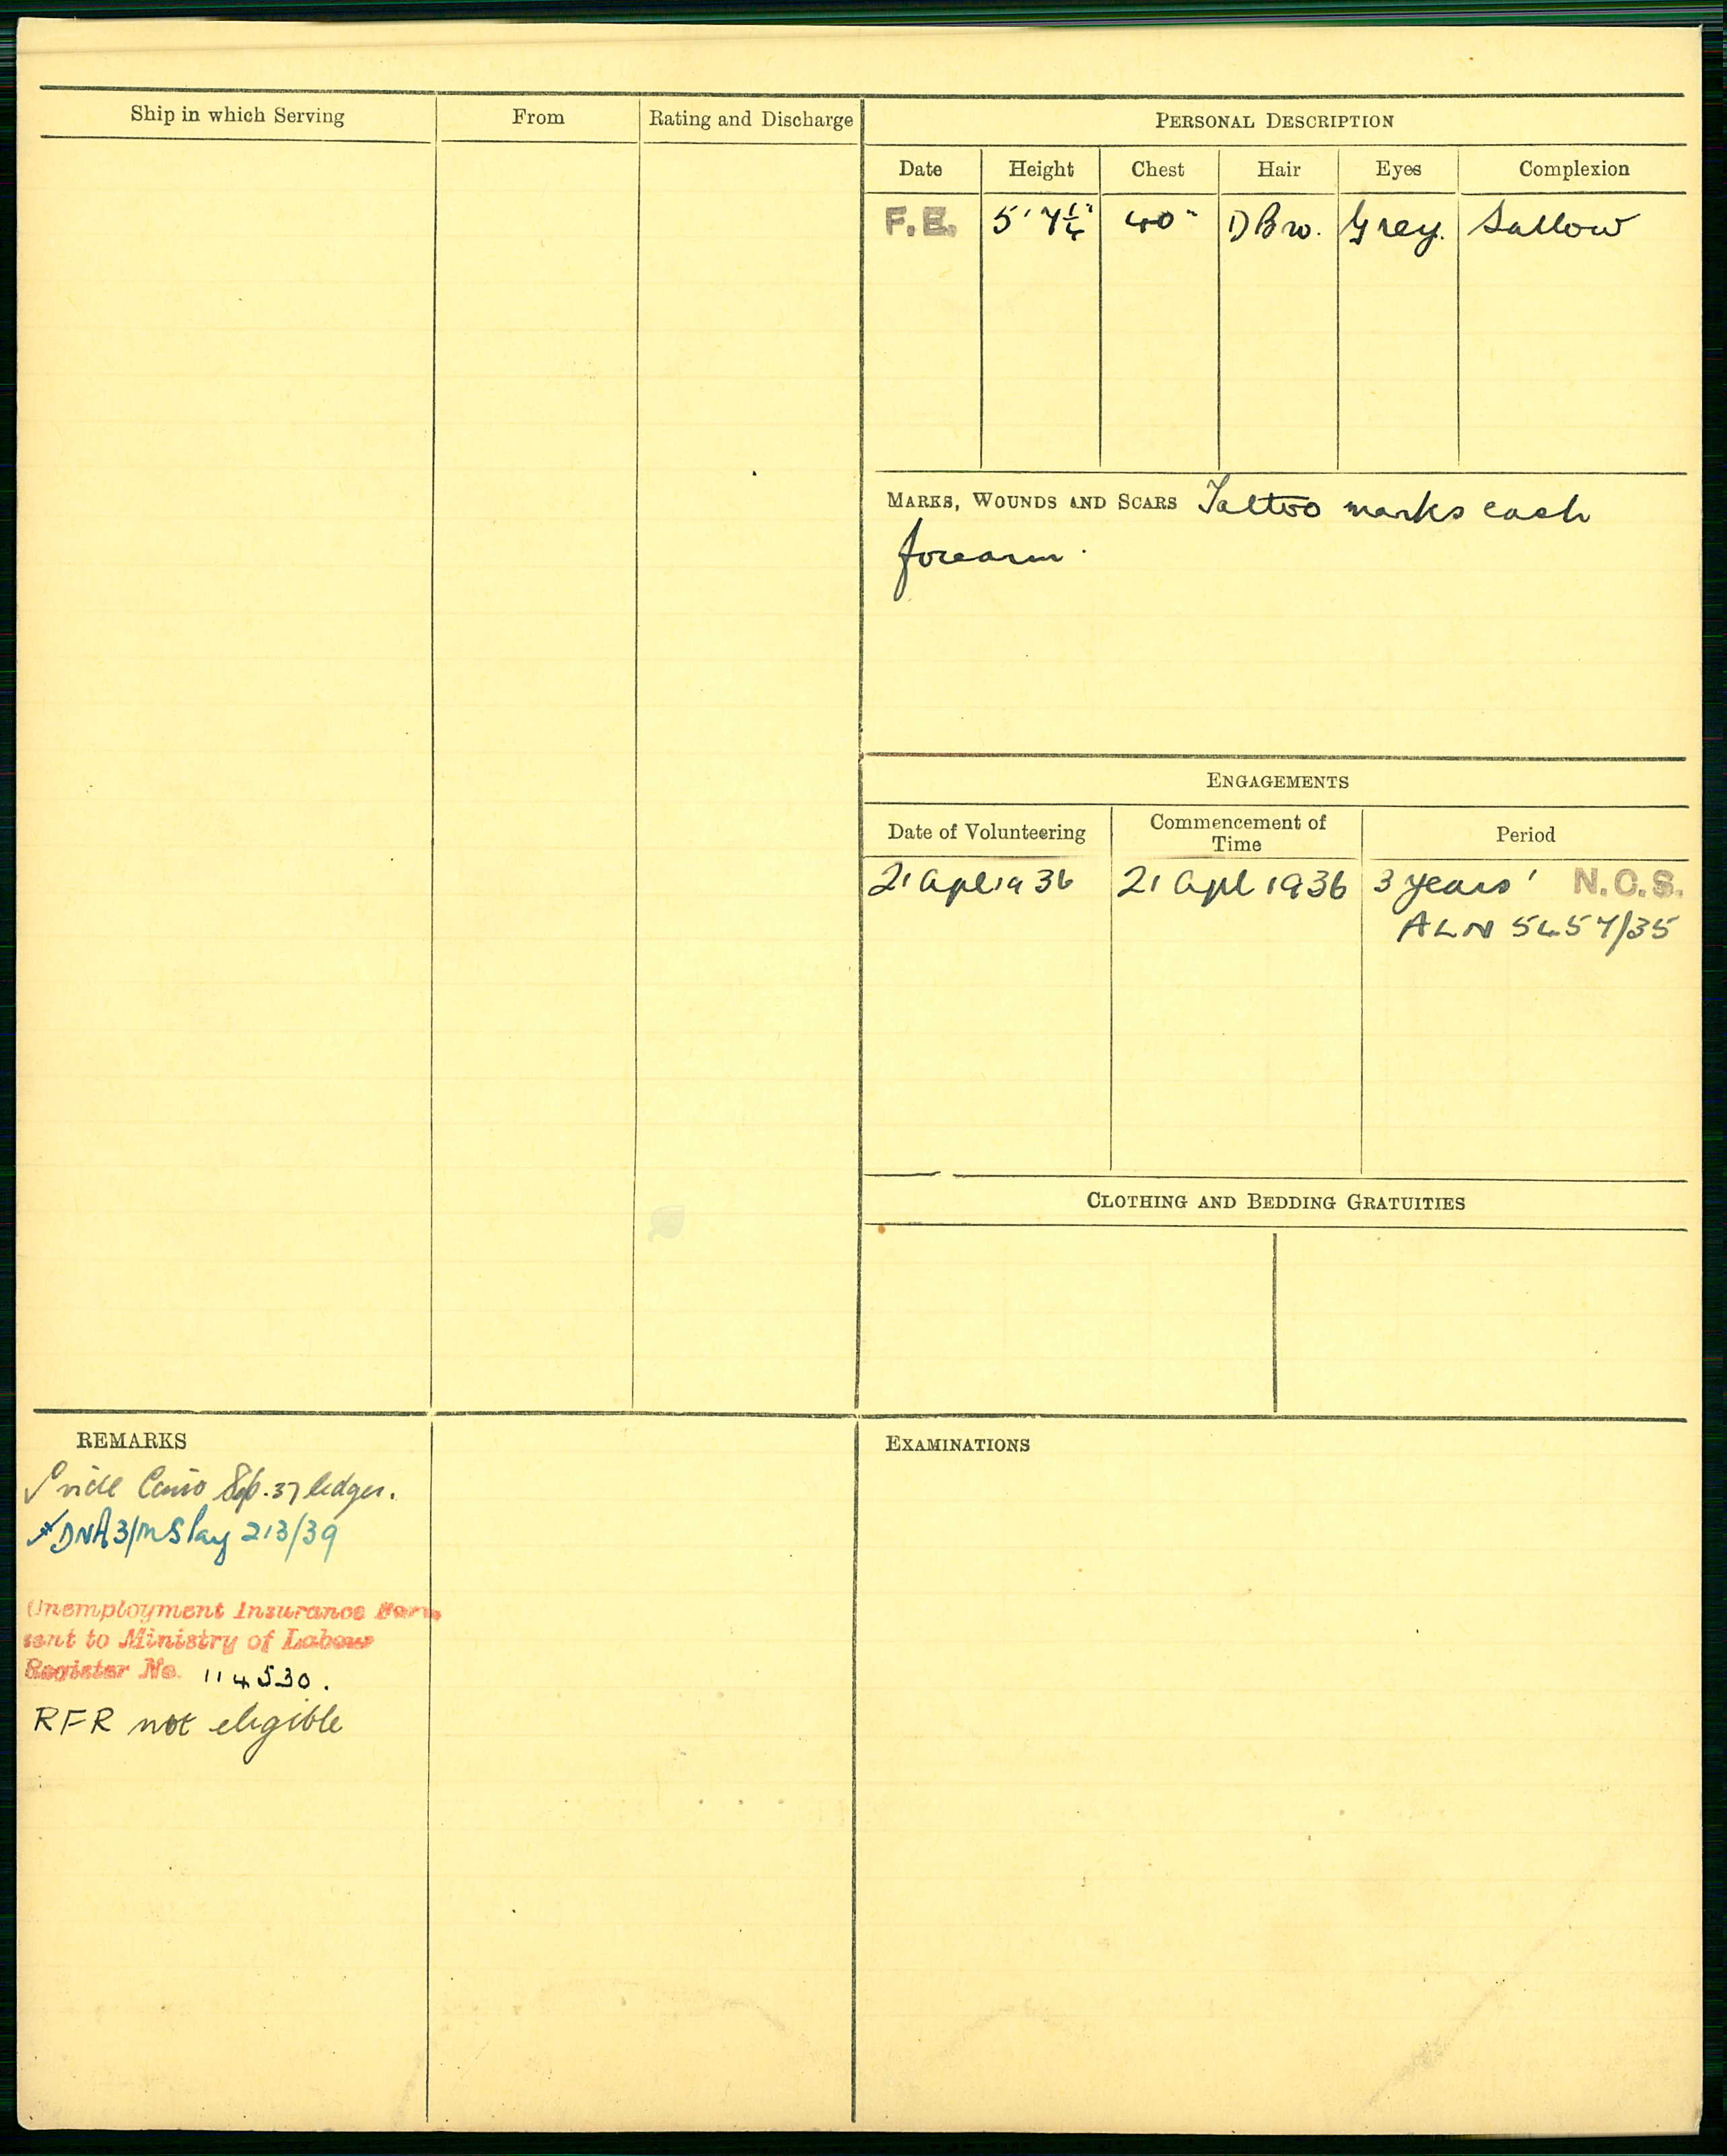 Ship in which Serving From Rating and Discharge
PERSONAL DESCRIPTION
Date Height Chest Hair Eyes Complexion
F.E. 5' 7¼" 40" D Bro. Grey. Sallow
MARKS, WOUNDS AND SCARS Tattoo marks each
forearm.
ENGAGEMENTS
Date of Volunteering Commencement of Time Period
21 Apl 1936 21 Apl 1936 3 years' N.C.S.
ALN 5457/35
CLOTHING AND BEDDING GRATUITIES
REMARKS
vide Cairo Sep. 37 ledger.
DNA3/ Pay 213/39
Unemployment Insurance Form
sent to Ministry of Labour
Register No. 114530.
RFR not eligible
EXAMINATIONS